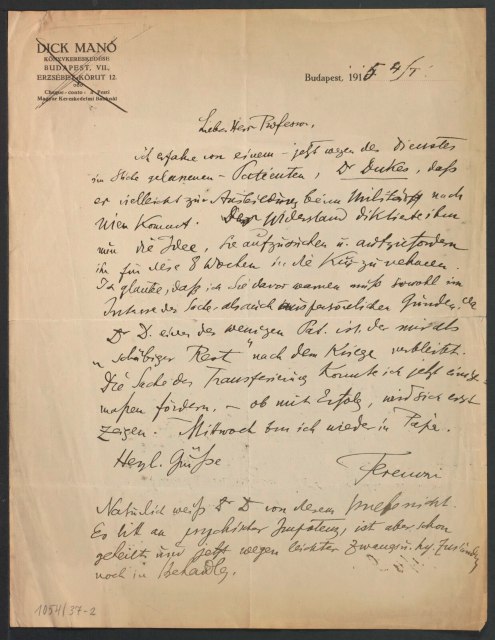 DICK MANÓ
KÖNYVKERESKEDÉSE
BUDAPEST, VII.,
ERZSÉBET-KÖRUT 12.
Cheque-conto: a Pesti
Magyar Kereskedelmi Banknál
Budapest, 1915
Lieber Herr Professor,
ich erfahre von einem - jetzt wegen des Dienstes
im Stiche gelassenen - Patienten, Dr Dukes, daß
er vielleicht zur Ausbildung beim Militär nach
Wien kommt. Der Widerstand diktierte ihm
nun die Idee, Sie aufzusuchen u. aufzufordern
ihn für diese 8 Wochen in die Kur zu nehmen
Ich glaube, daß ich Sie davor warnen muß sowohl im
Interesse der Sache als auch aus persönlichen Gründen, da
Dr D. einer der wenigen Pat. ist, der mir als
„schäbiger Rest" nach dem Kriege verbleibt.
Die Sache der Transferierung konnte ich jetzt einiger
maßen fördern, - ob mit Erfolg, wird sich erst
zeigen. - Mittwoch bin ich wieder in Pápa.
Herzl. Grüße
Ferenczi
Natürlich weiß Dr D von diesem nichts.
Es litt an psychischer Impotenz, ist aber schon
geheilt und jetzt wegen leichter Zwangs u. hy. Zustände
noch in Behandlg.
1054/37-2